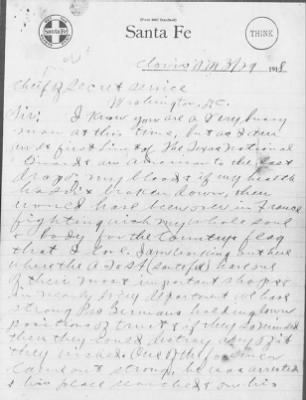 (Form 1661 Standard)
Santa Fe
Santa Fe
THINK
Clovis N M 3/29 1918
Chief of Secret Service
Washington, D.C.
Sir: I know you are a very busy
man at this time, but as I am
1st Lieut of The Texas National
Guard & am American to the last
drop of my blood & if my health
hadn't broken down, then
would have been over in France
fighting with my whole soul
& body for the Country & flag
that I love. I am working out here
where the A T & S F (Santa Fe) has one
of their most important shops &
in nearly every department we have
strong Pro Germans holding down
positions of trust & if they so minded
then they could destroy any of it
they wished. One of the foremen
came out strong, he was arrested
& his place searched & on his